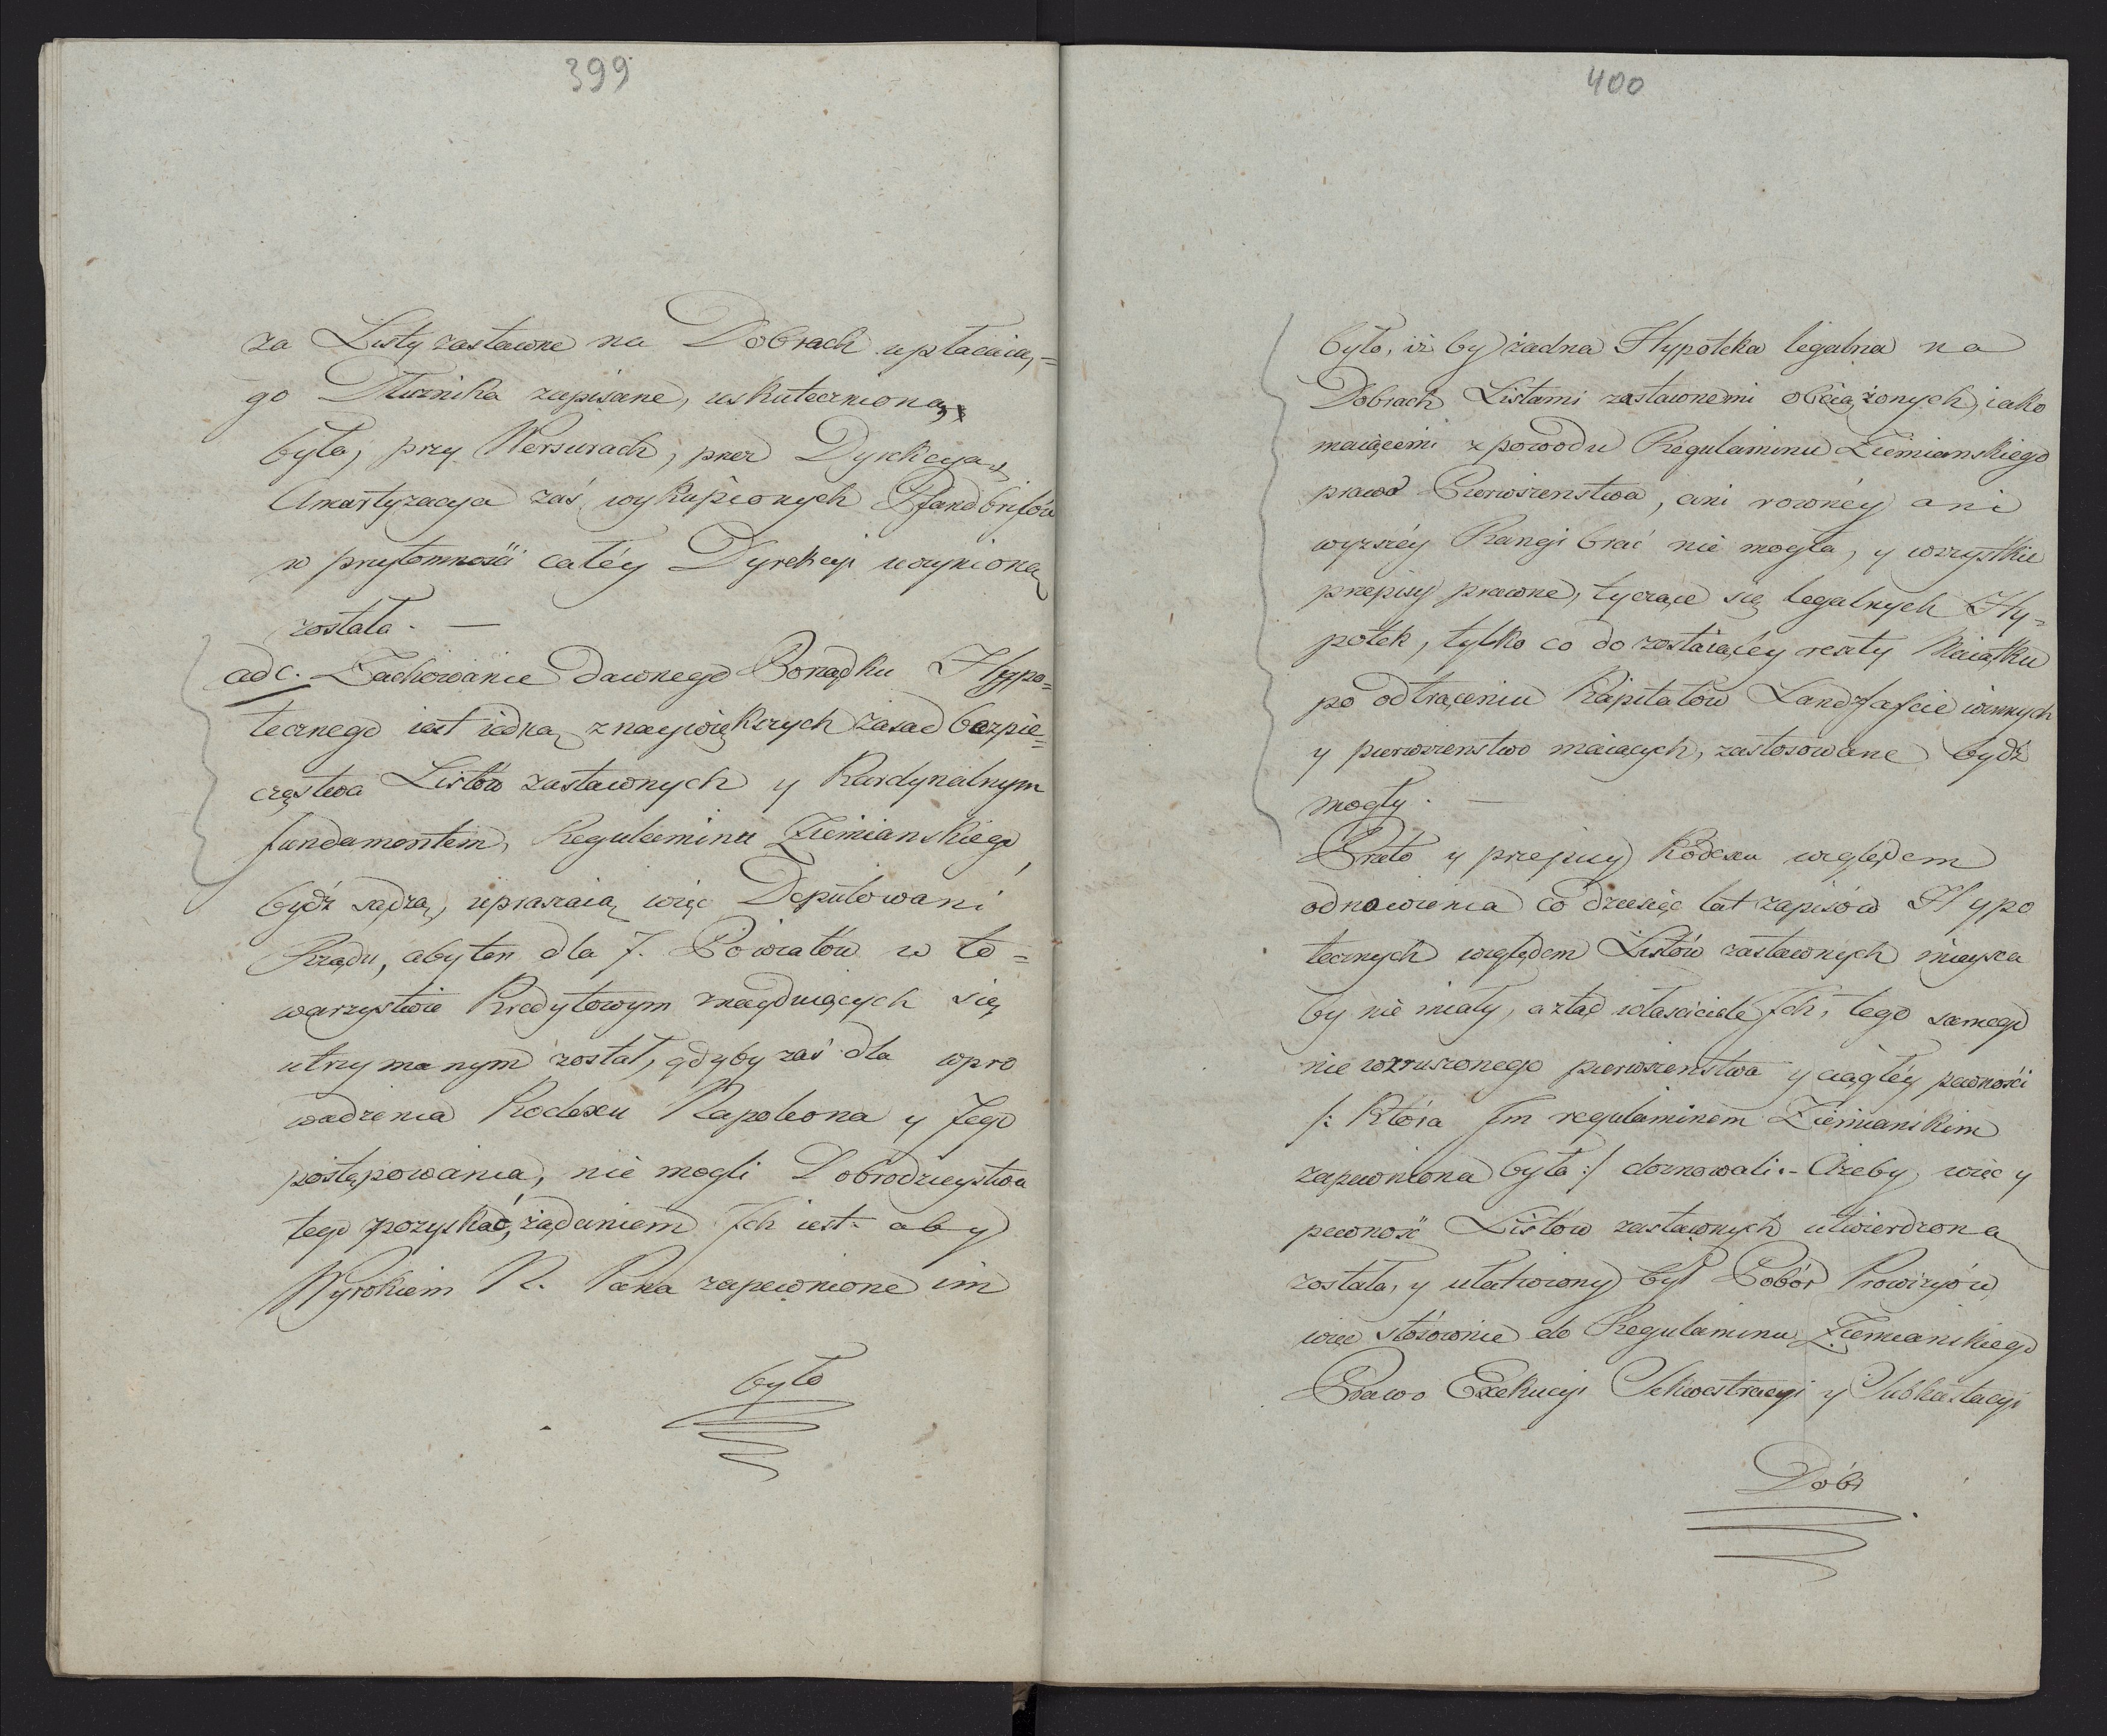 399
za Listy zastawne na Dobrach upłacaią,=
go Dłuznika zapisane, uskuteczniona
była, przy Wersurach, przez Dyrekcyą,
Amartyzacya zaś wykupionych Pfandbrifów
w przytomności całéy Dyrekcyi uczyniona
została. —
adc. Zachowanie dawnego Porządku Hypo=
tecznego iest iedną z naywiększych zasad bezpie=
częstwa Listów zastawnych y Kardynalnym
fundamentem, Regulaminu Ziemianskiego
bydź sądzą, upraszaią więc Deputowani
Rządu, aby ten dla 7. Powiatów w to=
warzystwie Kredytowym znayduiących się
utrzymanym został, gdyby zaś dla wpro
wadzenia Kodexu Napoleona y Jego
postępowania, nie mogli Dobrodzieystwa
tego pozyskać, żądaniem Jch iest aby
Wyrokiem N. Pana zapewnione im
było
400
było, iż by żadna Hypoteka legalna na
Dobrach Listami zastawnemi obciążonych, iako
maiącemi z powodu Regulaminu Ziemianskiego
prawo Pierwszenstwa, ani rownéy ani
wyzszéy Rangi brać nie mogła, y wszystkie
przepisy prawne, tyczące się legalnych Hy=
potek, tylko co do zostaiącey reszty Maiątku
po odtrąceniu Kapitałów Landszafcie winnych
y pierwszenstwo maiących, zastosowane bydź
mogły. —
Przeto y przepisy Kodexu względem
odnowienia co dziesięć lat zapisów Hypo
tecznych względem Listów zastawnych mieysca
by nie miały, a ztąd właściciele Jch, tego samego
nie wzruszonego pierwszenstwa y ciągłéy pewności
/: Która Jm regulaminem Ziemianskim
zapewniona była :/ doznowali. - Ażeby więc y
pewność Listów zastawnych utwierdzona
została, y ułatwiony był Pobór Prowizyów
więc stósownie do Regulaminu Ziemianskiego
Prawo Exekucyi Sekwestracyi y Subhastacyi
Dóbr